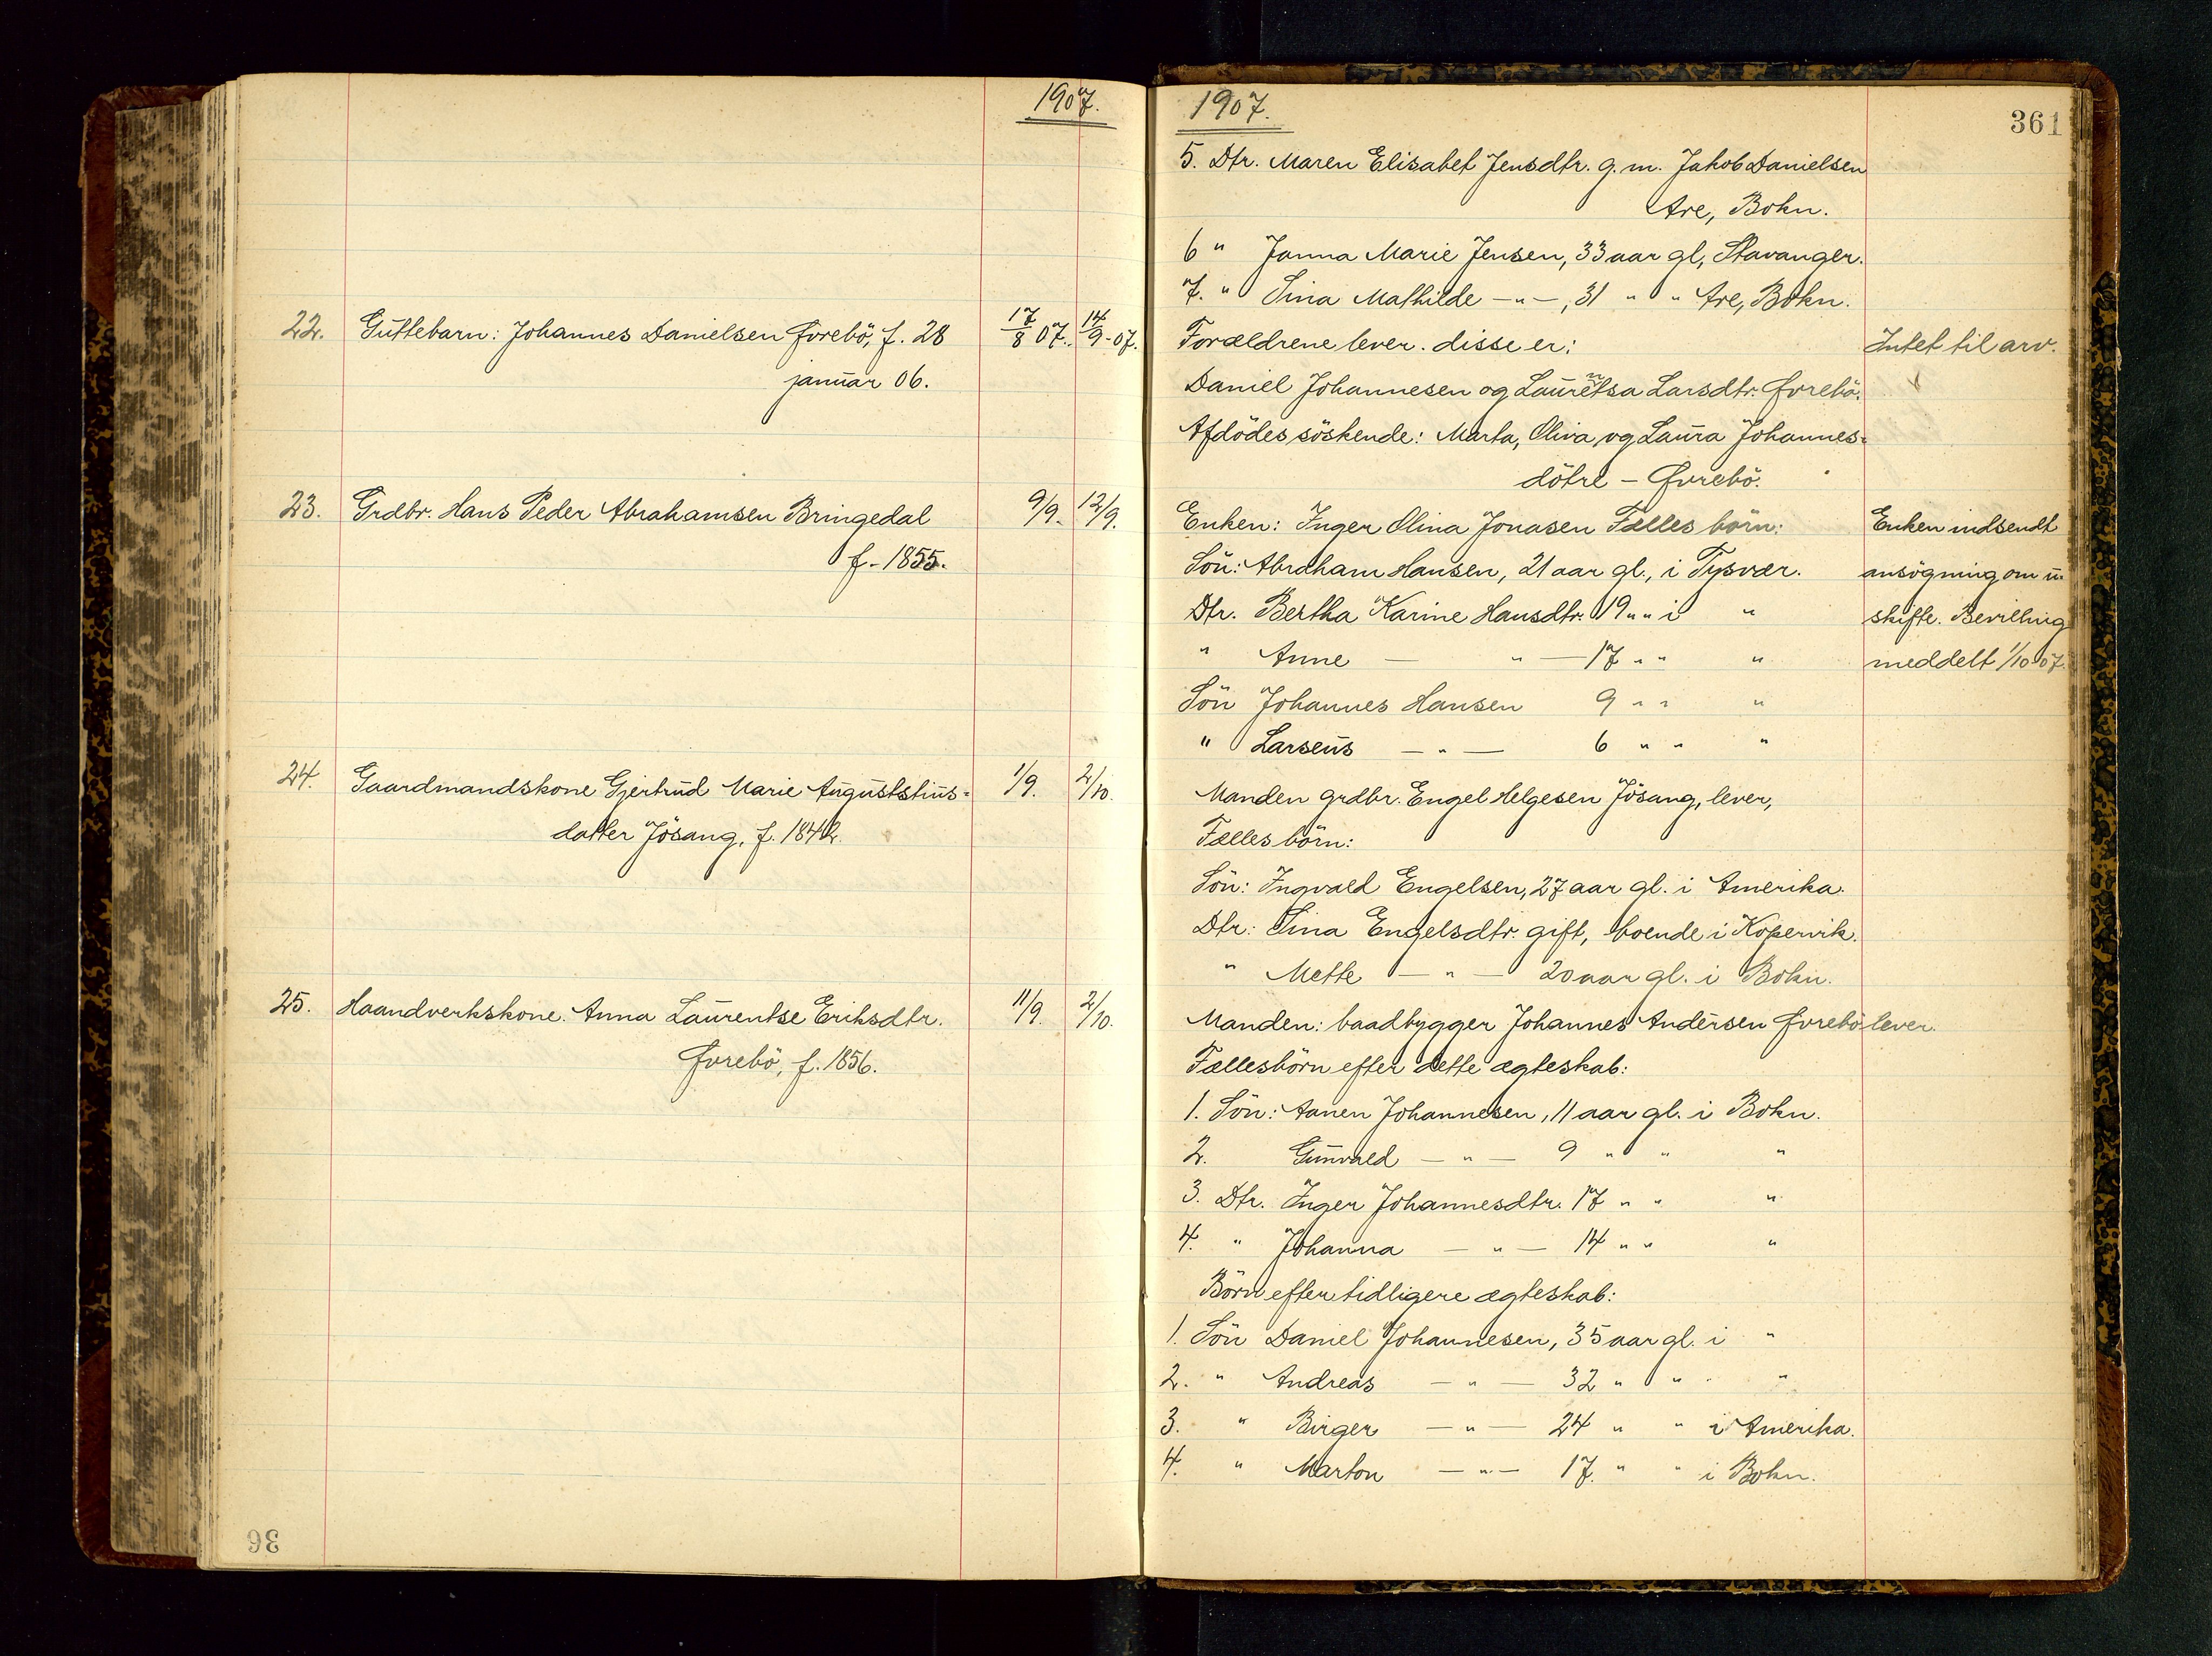 1907.
22. Guttebarn: Johannes Danielsen Øvrebö, f. 28 17/8 07. 14/9-07.
januar 06.
23. Grdbr. Hans Peder Abrahamsen Bringedal 9/9. 12/9.
f. 1855.
24. Gaardmandskone Gjertrud Marie Auguststius= 1/9. 2/10.
datter Jösang, f. 1842.
25. Haandverkskone. Anna Laurentse Eriksdtr. 11/9. 2/10.
Øvrebö, f. 1856.
36
1907. 361
5. Dtr. Maren Elisabet Jensdtr. g. m. Jakob Danielsen
Are, Bokn.
6 " Janna Marie Jensen, 33 aar gl, Stavanger.
7. " Sina Mathilde – " –, 31 " " Are, Bokn.
Forældrene lever. disse er: Intet til arv.
Daniel Johannesen og Lauretnsa Larsdtr. Øvrebö.
Afdödes söskende: Marta, Oliva og Laura Johannes=
dötre – Øvrebö.
Enken: Inger Olina Jonasen Fælles börn: Enken indsendt
Sön: Abraham Hansen, 21 aar gl., i Tysvær. ansögning om u-
Dtr. Bertha Karine Hansdtr. 19 " " i " skifte. Bevilling
" Anne – " – 17 " " " meddelt 1/10 07.
Sön Johannes Hansen 9 " " "
" Larseus – " – 6 " " "
Manden grdbr. Engel Helgesen Jösang, lever,
Fælles börn:
Sön: Ingvald Engelsen, 27 aar gl. i Amerika.
Dtr: Sina Engelsdtr. gift, boende i Kopervik.
" Mette – " – 20 aar gl. i Bokn.
Manden: baadbygger Johannes Andersen Øvrebö lever.
Fællesbörn efter dette ægteskab:
1. Sön: Aanen Johannesen, 11 aar gl. i Bokn.
2. Gunvald – " – 9 " " "
3. Dtr. Inger Johannesdtr. 17 " " "
4. " Johanna – " – 14 " " "
Börn efter tidligere ægteskab:
1. Sön Daniel Johannesen, 35 aar gl. i "
2. " Andreas – " – 32 " " "
3. " Birger – " – 24 " " i Amerika.
4. " Marton – " – 17. " " i Bokn.